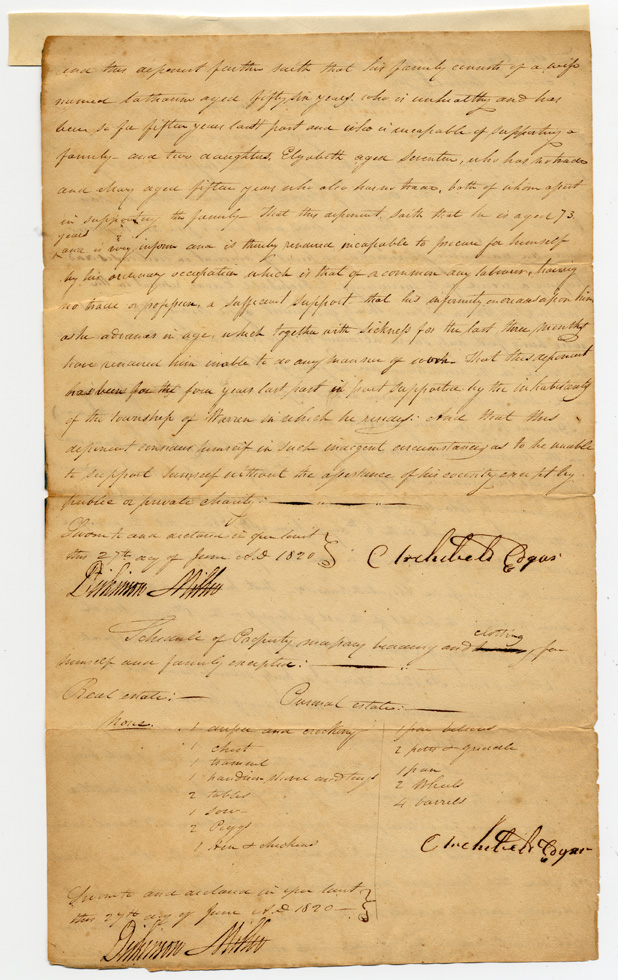 and this deponent further saith that his family consists of a wife
named Catharine aged fifty six years, who is unhealthy and has
been so for fifteen years last past and who is incapable of supporting a
family – and two daughters, Elyabeth aged seventeen, who has no trade
and aged fifteen years who also has no trade, both of whom assist
in supporting the family – that this deponent, saith that he is aged 73
years
and is very infirm and is thereby rendered incapable to procure for himself
by his ordinary occupation which is that of a common day labourer, having
no trade or profession, a sufficient support that his infirmity increases upon him
as he advances in age, which together with sickness for the last three months
have rendered him unable to do any manner of work – That this deponent
has been for the four years last past in part supported by the inhabitants
of the township of Warren in which he resides: And that this
deponent considers himself in such indigent circumstances as to be unable
to support himself without the assistance of his country except by
public or private charity:
Sworn to and declared in open court
this 27th day of June A.D 1820 Archibald Edgar
Dickinson Miller
clothing
Schedule of Property necessary bedding and for
himself and family excepted:
Real estate: – Personal estate: –
None. 1 dresser and crockery 1 pair bellows
1 chest 2 potts & griddle
1 trammel 1 pan
1 handiron shovel and tongs 2 Wheels
2 tables 4 barrels
1 sow
2 Piggs
1 Hen & chickens
Archibald Edgar
Sworn to and declared in open court
this 27th day of June A.D 1820 –
Dickinson Miller